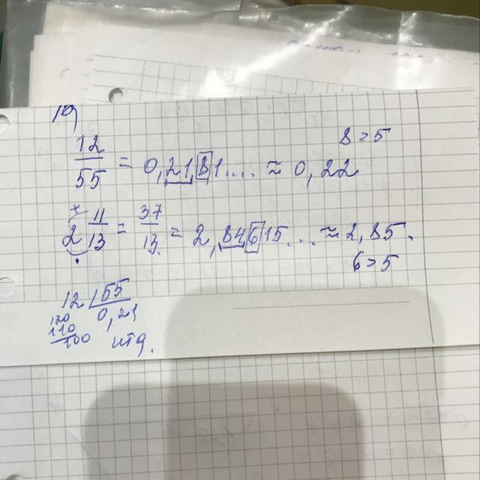 12/55 = 0,2181.... ≈ 0,22
8 > 5
2 11/13 = 37/13 = 2,84615... ≈ 2,85.
6 > 5
12 | 55
120 0,21
110
100 итд.